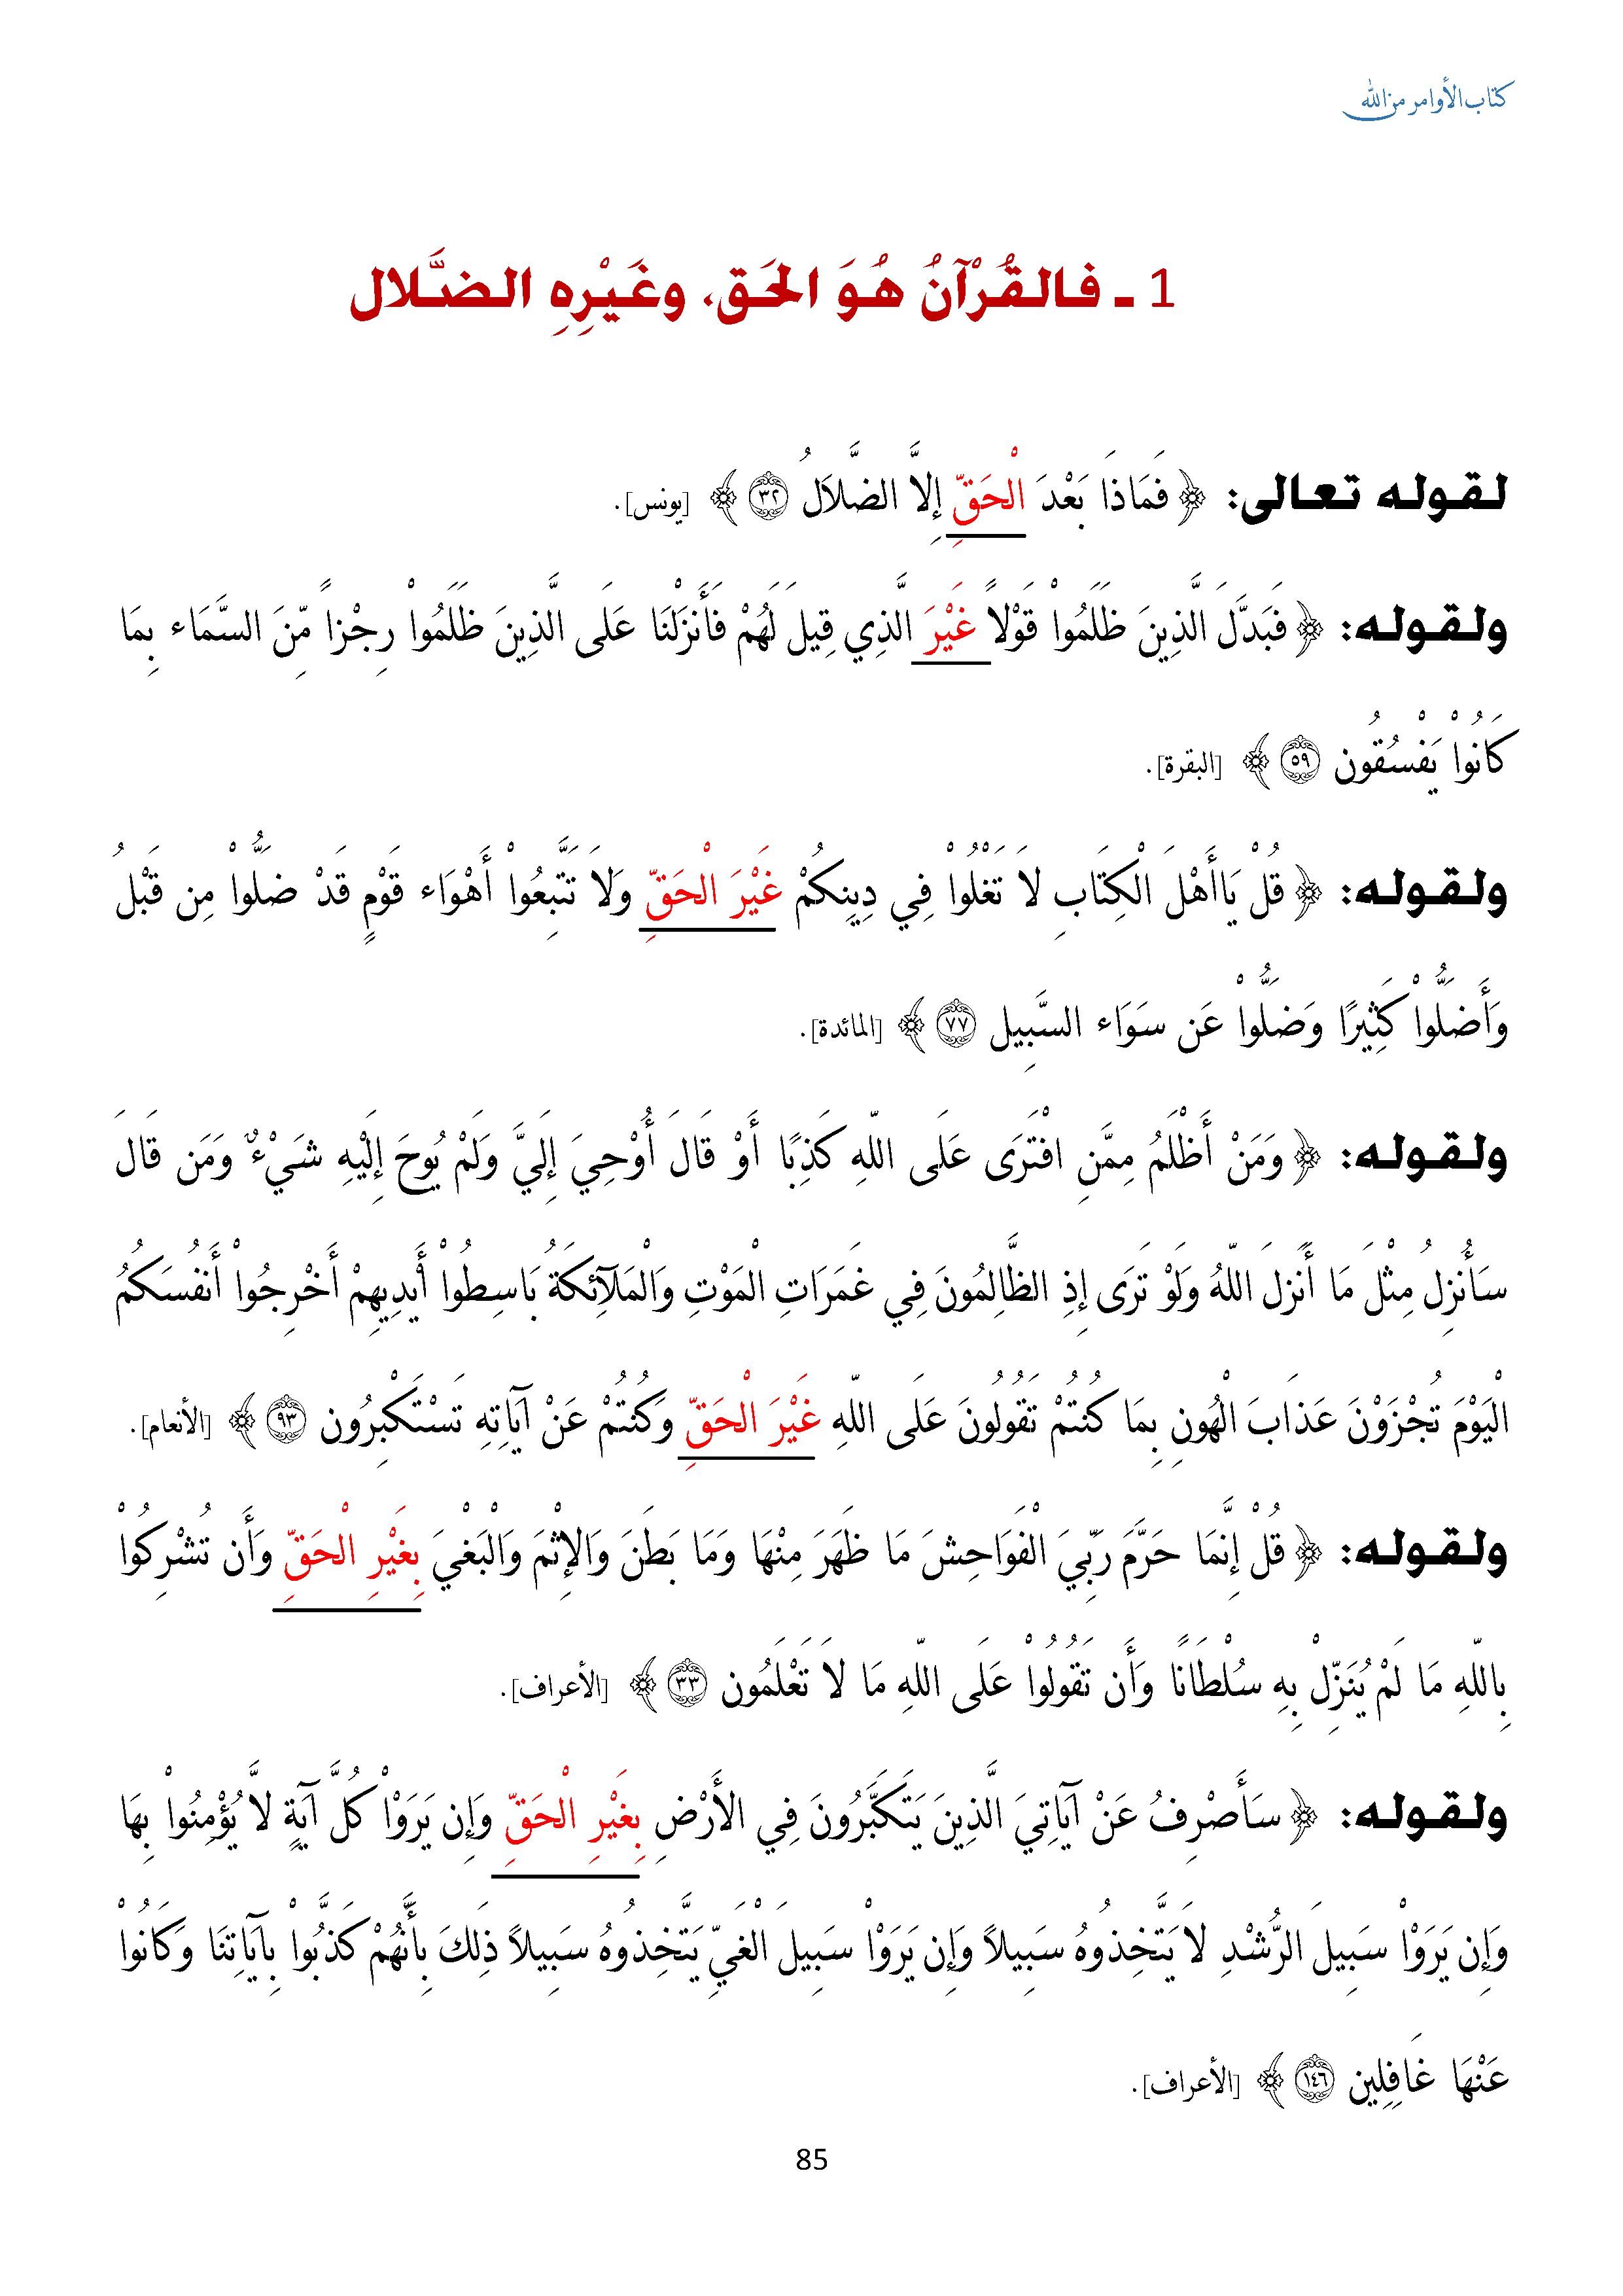 كتاب الأوامر من الله
1 ـ فالقُرْآنُ هُوَ الحَق، وغَيْرِهِ الضَّلال
لقوله تعالى: ﴿ فَمَاذَا بَعْدَ الْحَقِّ إِلاَّ الضَّلاَلُ ٣٢ ﴾ [يونس].
ولقوله: ﴿ فَبَدَّلَ الَّذِينَ ظَلَمُواْ قَوْلاً غَيْرَ الَّذِي قِيلَ لَهُمْ فَأَنزَلْنَا عَلَى الَّذِينَ ظَلَمُواْ رِجْزاً مِّنَ السَّمَاء بِمَا
كَانُواْ يَفْسُقُون ٥٩ ﴾ [البقرة].
ولقوله: ﴿ قُلْ يَاأَهْلَ الْكِتَابِ لاَ تَغْلُواْ فِي دِينِكُمْ غَيْرَ الْحَقِّ وَلاَ تَتَّبِعُواْ أَهْوَاء قَوْمٍ قَدْ ضَلُّواْ مِن قَبْلُ
وَأَضَلُّواْ كَثِيرًا وَضَلُّواْ عَن سَوَاء السَّبِيل ٧٧ ﴾ [المائدة].
ولقوله: ﴿ وَمَنْ أَظْلَمُ مِمَّنِ افْتَرَى عَلَى اللّهِ كَذِبًا أَوْ قَالَ أُوْحِيَ إِلَيَّ وَلَمْ يُوحَ إِلَيْهِ شَيْءٌ وَمَن قَالَ
سَأُنزِلُ مِثْلَ مَا أَنَزلَ اللّهُ وَلَوْ تَرَى إِذِ الظَّالِمُونَ فِي غَمَرَاتِ الْمَوْتِ وَالْمَلآئِكَةُ بَاسِطُواْ أَيْدِيهِمْ أَخْرِجُواْ أَنفُسَكُمُ
الْيَوْمَ تُجْزَوْنَ عَذَابَ الْهُونِ بِمَا كُنتُمْ تَقُولُونَ عَلَى اللّهِ غَيْرَ الْحَقِّ وَكُنتُمْ عَنْ آيَاتِهِ تَسْتَكْبِرُون ٩٣ ﴾ [الأنعام].
ولقوله: ﴿ قُلْ إِنَّمَا حَرَّمَ رَبِّيَ الْفَوَاحِشَ مَا ظَهَرَ مِنْهَا وَمَا بَطَنَ وَالإِثْمَ وَالْبَغْيَ بِغَيْرِ الْحَقِّ وَأَن تُشْرِكُواْ
بِاللّهِ مَا لَمْ يُنَزِّلْ بِهِ سُلْطَانًا وَأَن تَقُولُواْ عَلَى اللّهِ مَا لاَ تَعْلَمُون ٣٣ ﴾ [الأعراف].
ولقوله: ﴿ سَأَصْرِفُ عَنْ آيَاتِيَ الَّذِينَ يَتَكَبَّرُونَ فِي الأَرْضِ بِغَيْرِ الْحَقِّ وَإِن يَرَوْاْ كُلَّ آيَةٍ لاَّ يُؤْمِنُواْ بِهَا
وَإِن يَرَوْاْ سَبِيلَ الرُّشْدِ لاَ يَتَّخِذُوهُ سَبِيلاً وَإِن يَرَوْاْ سَبِيلَ الْغَيِّ يَتَّخِذُوهُ سَبِيلاً ذَلِكَ بِأَنَّهُمْ كَذَّبُواْ بِآيَاتِنَا وَكَانُواْ
عَنْهَا غَافِلِين ١٤٦ ﴾ [الأعراف].
85